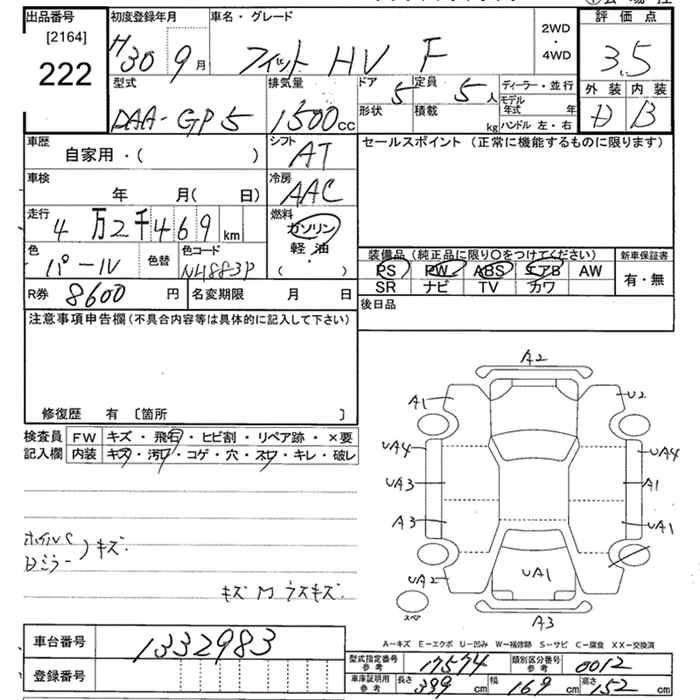 出品番号 初度登録年月 車名・グレード 評価点
[2164]
222
H30 9月 フィット HV F 2WD・4WD 3.5
型式 排気量 ドア 5 定員 5人 ディーラー・並行 外装 内装
DAA-GP5 1500cc 形状 積載 kg モデル年式 年 D B
ハンドル 左・右
車歴 シフト セールスポイント (正常に機能するものに限ります)
自家用・( ) AT
車検 冷房
年 月( 日) AAC
走行 燃料
4万2千469km ガソリン
軽・油
( )
色 色替 色コード 装備品 (純正品に限り〇をつけてください) 新車保証書
パール NH883P PS PW ABS エアB AW 有・無
SR ナビ TV カワ
R券 8600円 名変期限 月 日 後日品
注意事項申告欄(不具合内容等は具体的に記入して下さい)
修復歴 有 〔箇所 〕
検査員 FW キズ・飛石・ヒビ割・リペア跡・×要
記入欄 内装 キズ・汚レ・コゲ・穴・スレ・キレ・破レ
A2
A1 U2
UA4 UA4
UA3 A1
A3 UA1
UA2 UA1
スペア A3
キズ
キズ M ウスキズ
A-キズ E-エクボ U-凹み W-補修跡 S-サビ C-腐食 XX-交換済
車台番号 1332983
型式指定番号 参考 17574 類別区分番号 参考 0012
登録番号
車庫証明用 参考 長さ 399cm 幅 169cm 高さ 152cm